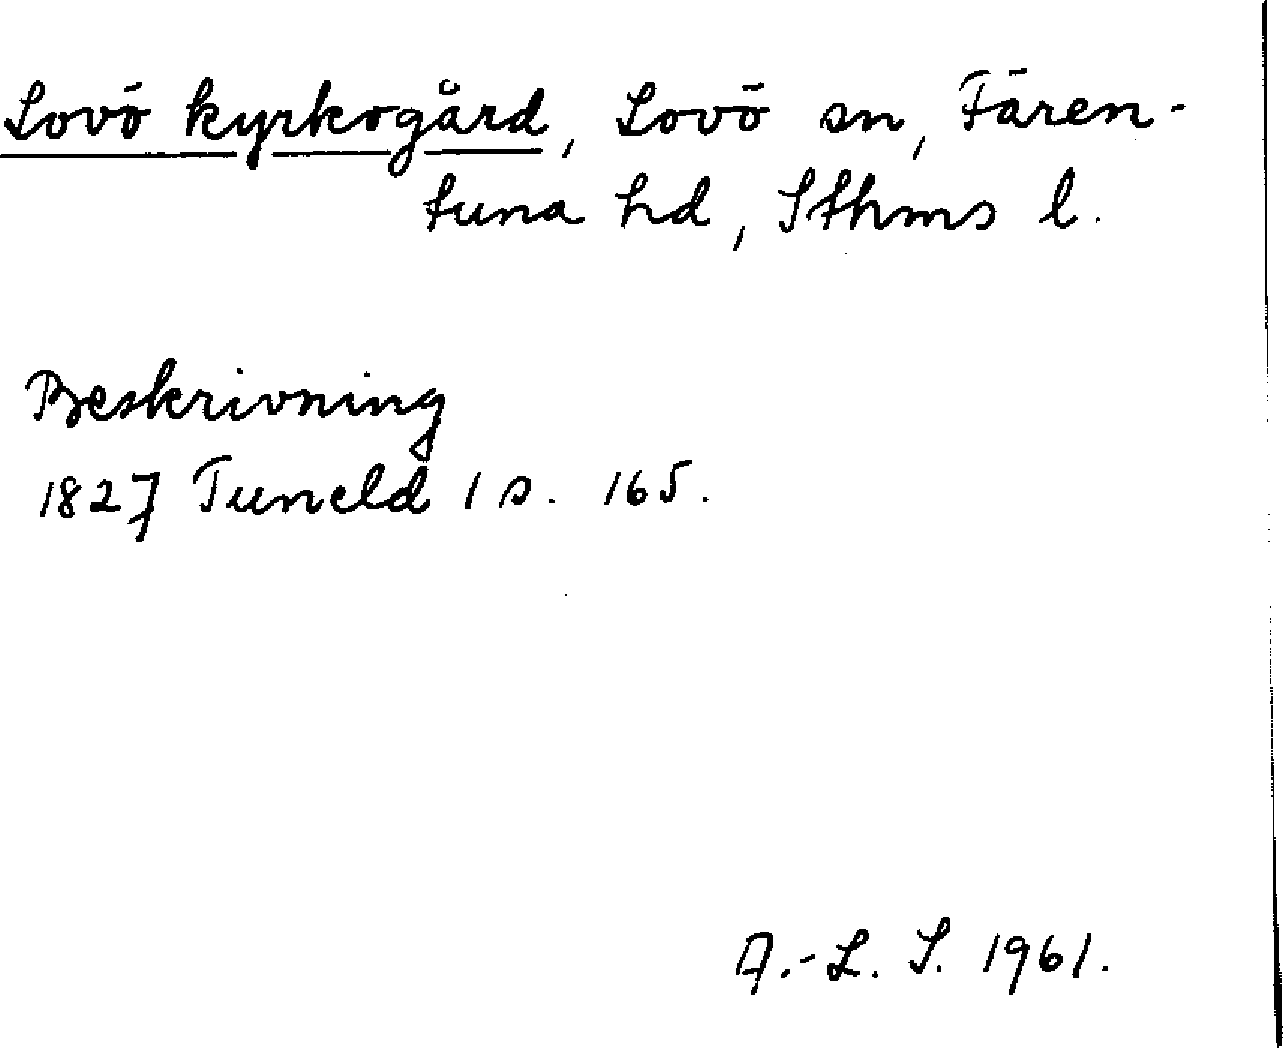 Lovö kyrkogård, Lovö sn, Fären-
tuna hd, Sthms l.
Beskrivning
1827 Tuneld 1 s. 165.
A.-L. S. 1961.